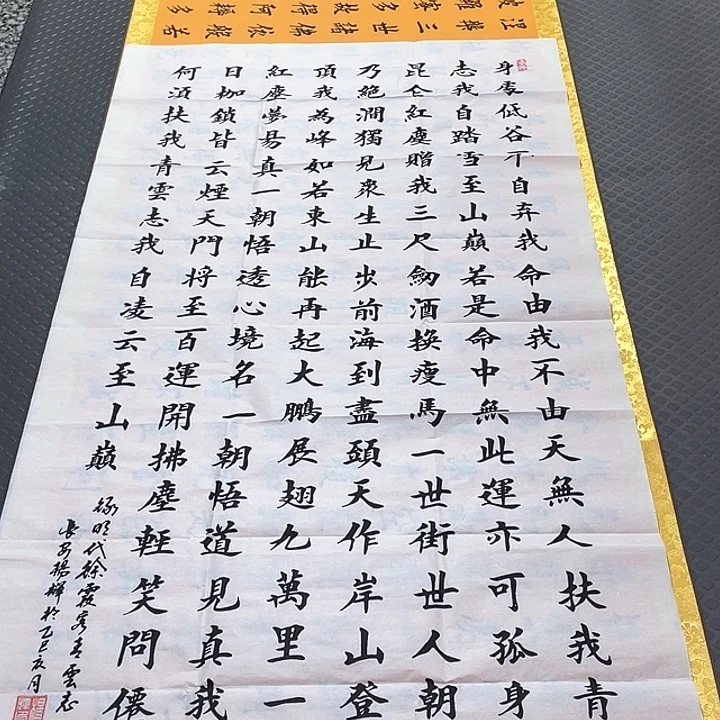 身處低谷不自弃我命由我不由天無人扶我青
志我自踏雪至山巔若是命中無此運亦可孤身
昆仑紅塵贈我三尺劍酒換瘦馬一世街世人朝
乃絕澗獨見衆生止步前海到盡頭天作岸山登
頂我為峰如若東山能再起大鵬展翅九萬里一
紅塵夢易真一朝悟透心境名一朝悟道見真我
日枷鎖皆云煙天門將至百運開拂塵輕笑問僊
何須扶我青雲志我自凌云至山巔
録明代徐霞客青雲志
長安楊輝於乙巳夏月